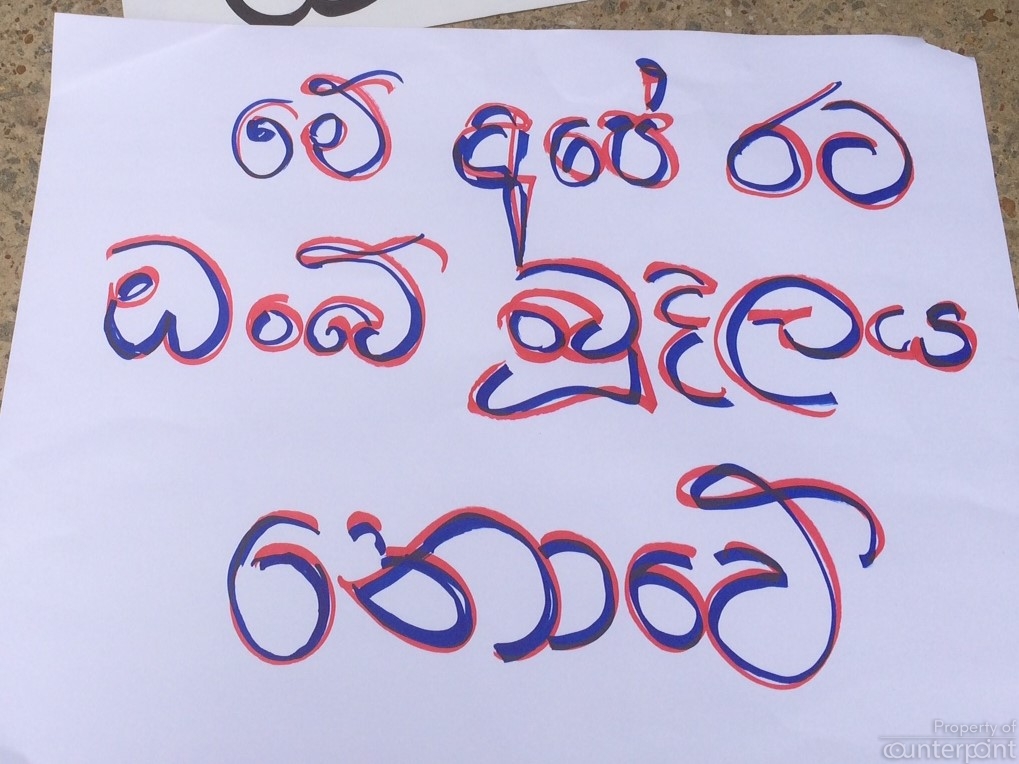 මේ අපේ රට
ඔබේ බූදලය
නොවේ
Property of
counterpoint